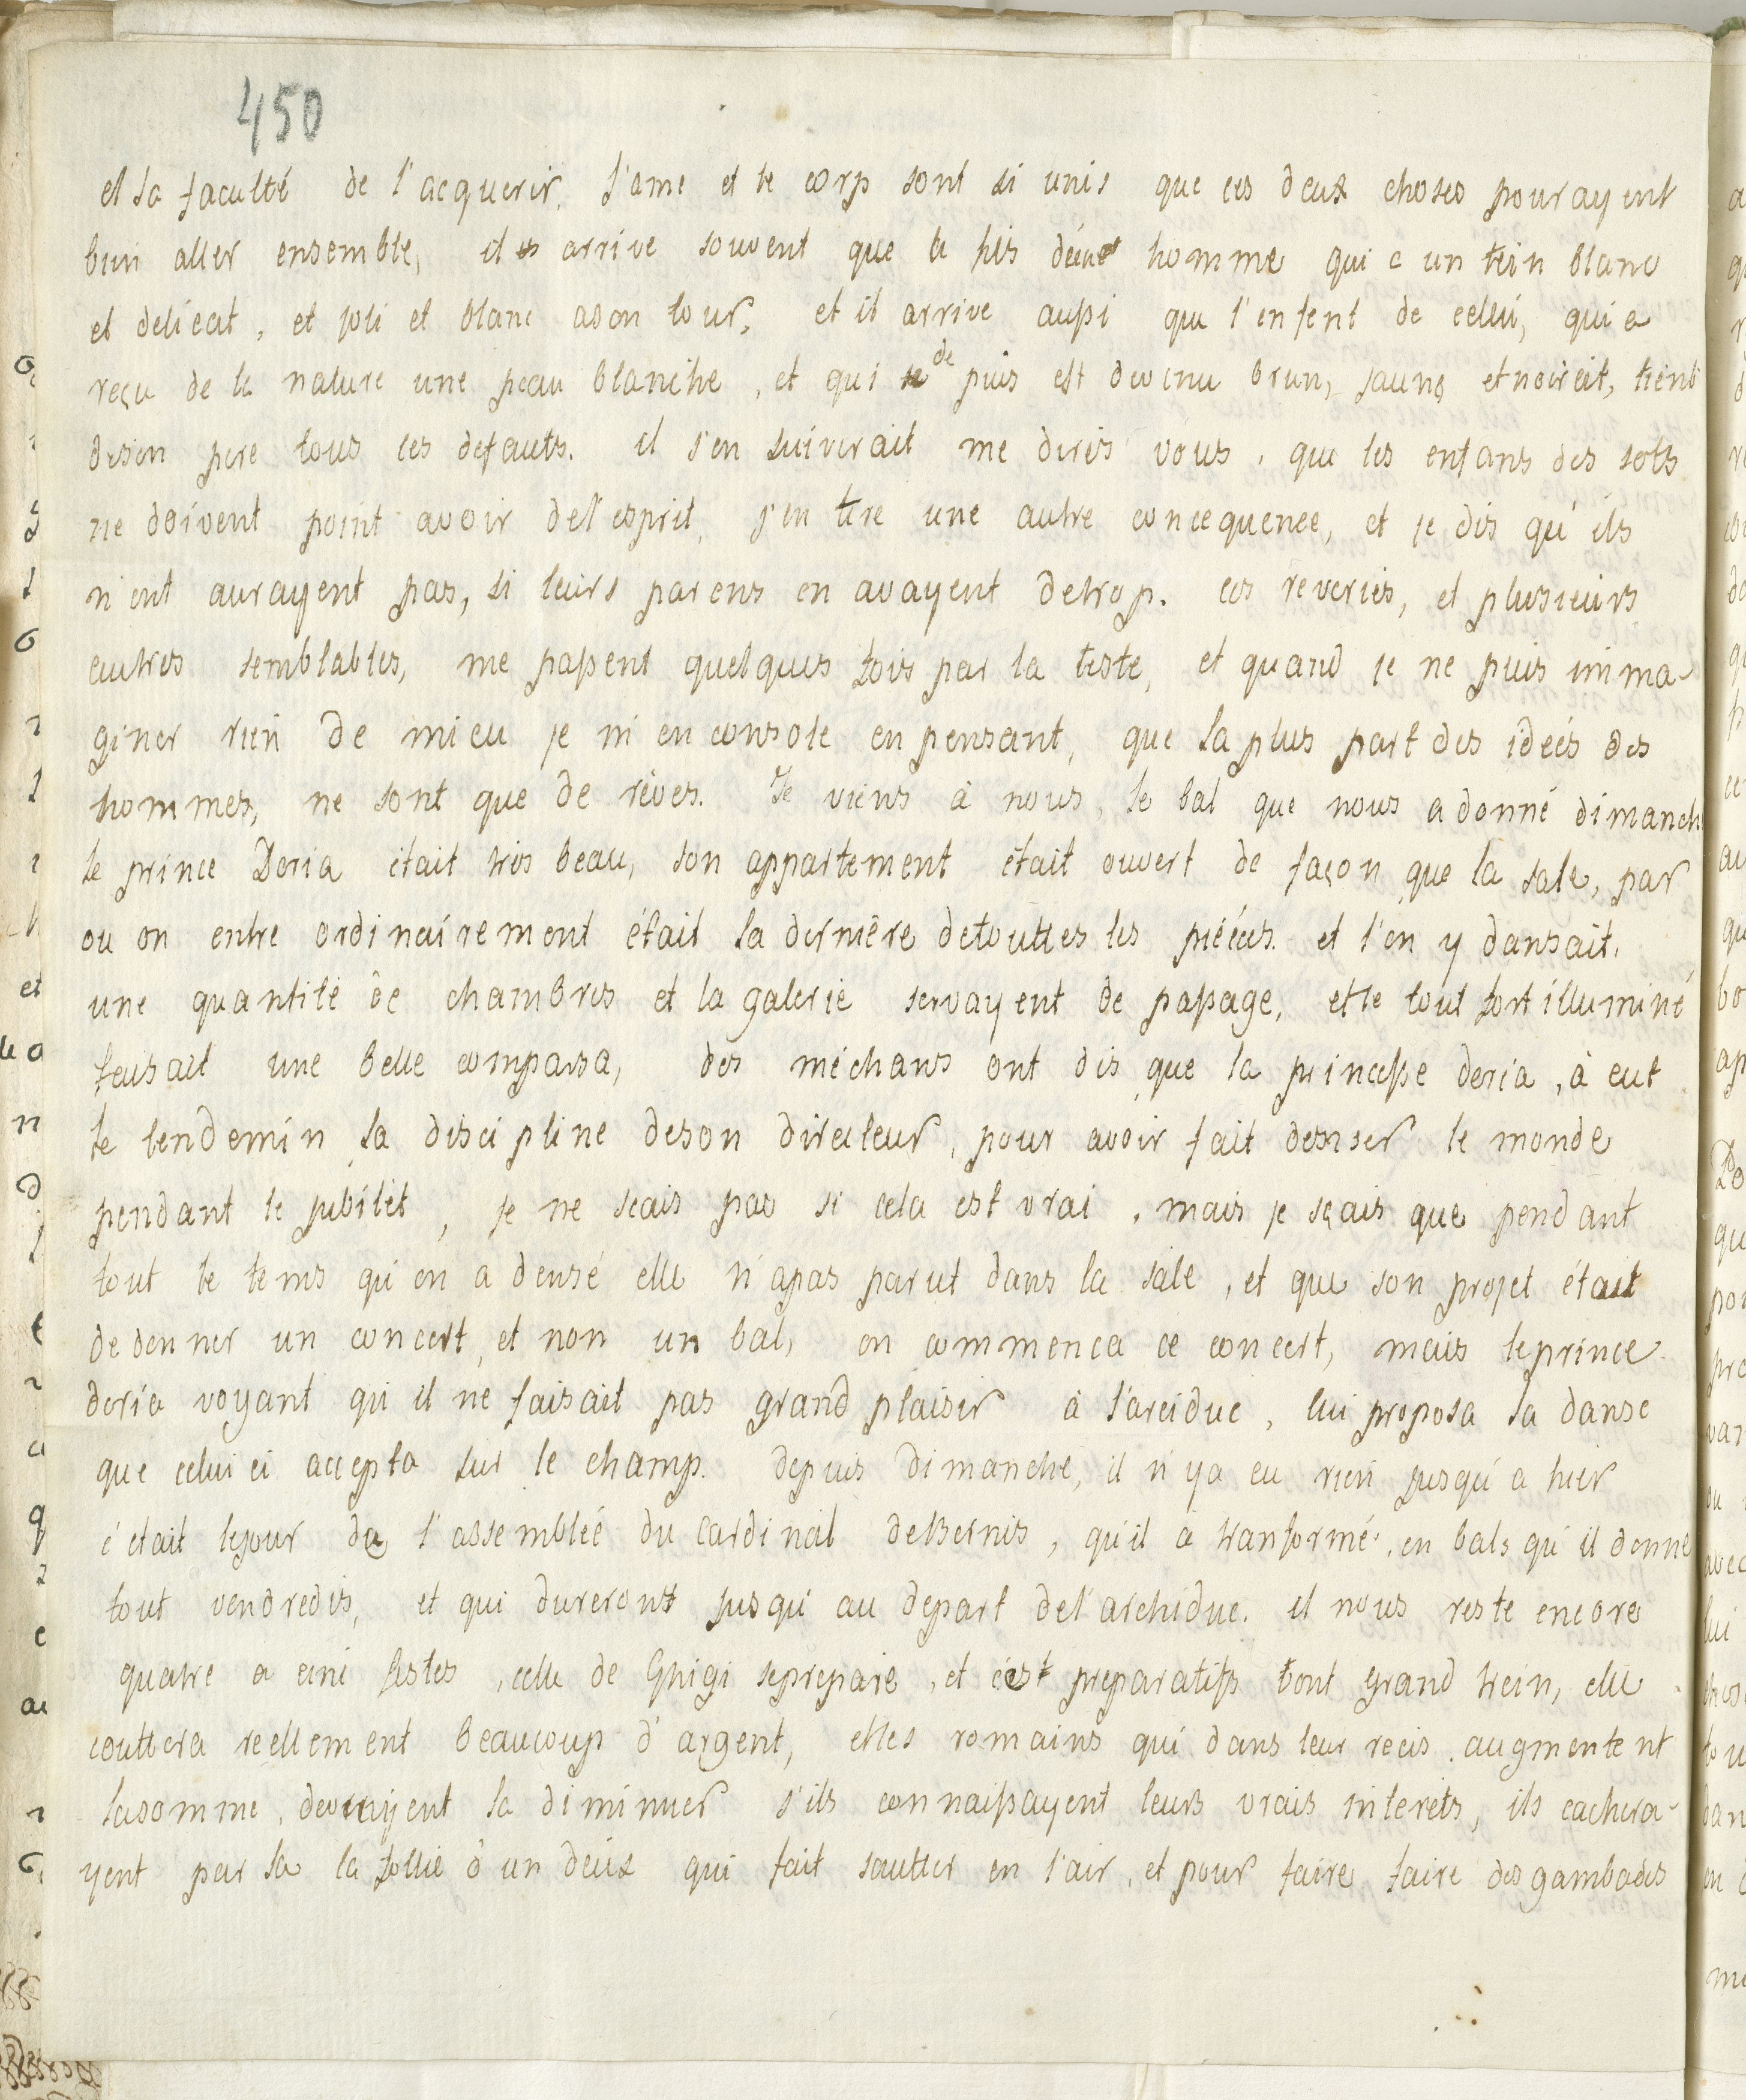 450
et la faculté de l'acquerir. l'ame et le corp sont si unis que ces deux choses pourayent
bien aller ensemble, il arrive souvent que le fils d'un homme qui a un tein blanc
et delicat, et joli et blanc a son tour, et il arrive aussi que l'enfent de cellui, qui a
reçu de la nature une peau blanche, et qui de puis est devenu brun, jaune et noireit, tient
deson pere tous ces defauts. il s'en suiverait me dires vous, que les enfans des sots
ne doivent point avoir del'esprit, j'en tire une autre concequence, et je dis qu'ils
n'ent aurayent pas, si leurs parens en avayent detrop. ces reveries, et plusieurs
autres semblables, me passent quelques fois par la teste, et quand je ne puis imma-
giner rien de mieu je m'en console en pensant, que la plus part des ideés des
hommes, ne sont que de rèves. Je viens à nous, le bal que nous a donné dimanch
le prince Doria était tres beau, son appartement était ouvert de façon que la sale, par
ou on entre ordinairement était la derniêre detouttes les piéces. et l'on y dansait.
une quantité de chambres et la galerie servayent de passage, et le tout fort illuminé
faisait une belle comparsa, des méchans ont dis que la princesse doria, à eut
le lendemin la discipline deson directeur, pour avoir fait denser le monde
pendant le jubilét, je ne scais pas si cela est vrai, mais je sçais que pendant
tout le tems qu'on a densé elle n'apas parut dans la sale, et que son projet était
de donner un concert, et non un bal, on commenca ce concert, mais leprince
doria voyant qu'il ne faisait pas grand plaisir à l'arcidue, lui proposa la danse
que celui ci accepta sur le champ. depuis dimanche, il n'ya eu rien jusqu'a hier
c'etait lejour de l'assembléé du Cardinal deBernis, qu'il à tranformé en bals qu'il donne
tout vendredis, et qui dureront jusqu'au depart del'archiduc. il nous reste encore
quatre a cinc festes, celle de Ghigi seprepare, et cest preparatifs vont grand trein, elle
couttera reellement beaucoup d'argent, et les romains qui dans leur recis augmentent
lasomme, devrayent la diminuer s'ils connaissayent leurs vrais interets, ils cachera-
yent par la la follie d'un deux qui fait sautter en l'air, et pour faire faire des gambades